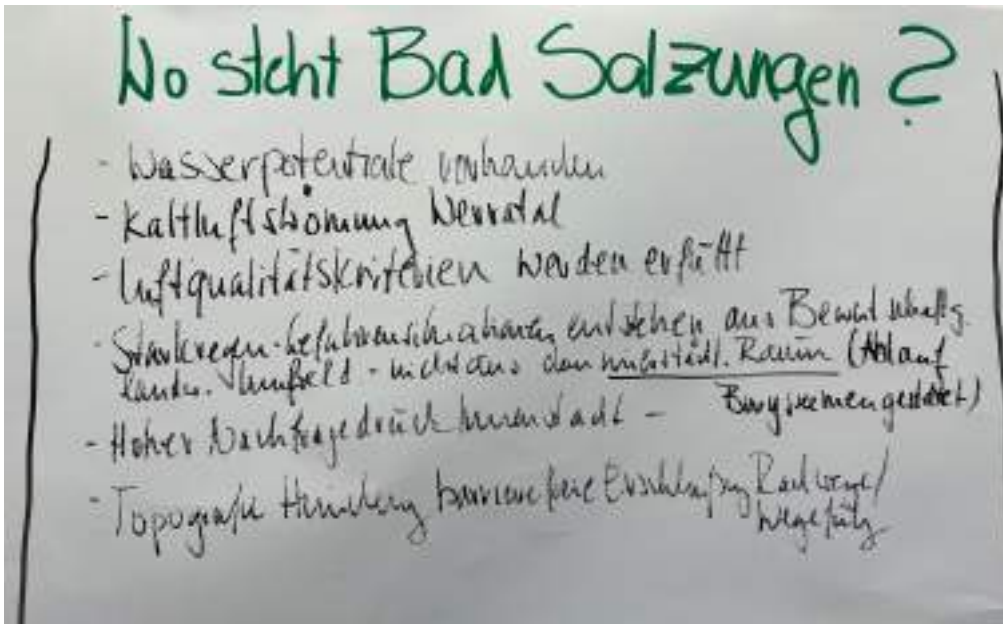 Wo steht Bad Salzungen ?
- Wasserpotentiale vorhanden
- Kaltluftströmung Werratal
- Luftqualitätskriterien werden erfüllt
- Starkregen-Gefahrensituationen entstehen aus Bewirtschaftg.
Landw. Umfeld - nicht aus dem innerstädt. Raum (Ablauf
Burgsee
- Hoher Nachfragedruck Innenstadt -
- Topografie barrierefreie Erschließung Radwege/